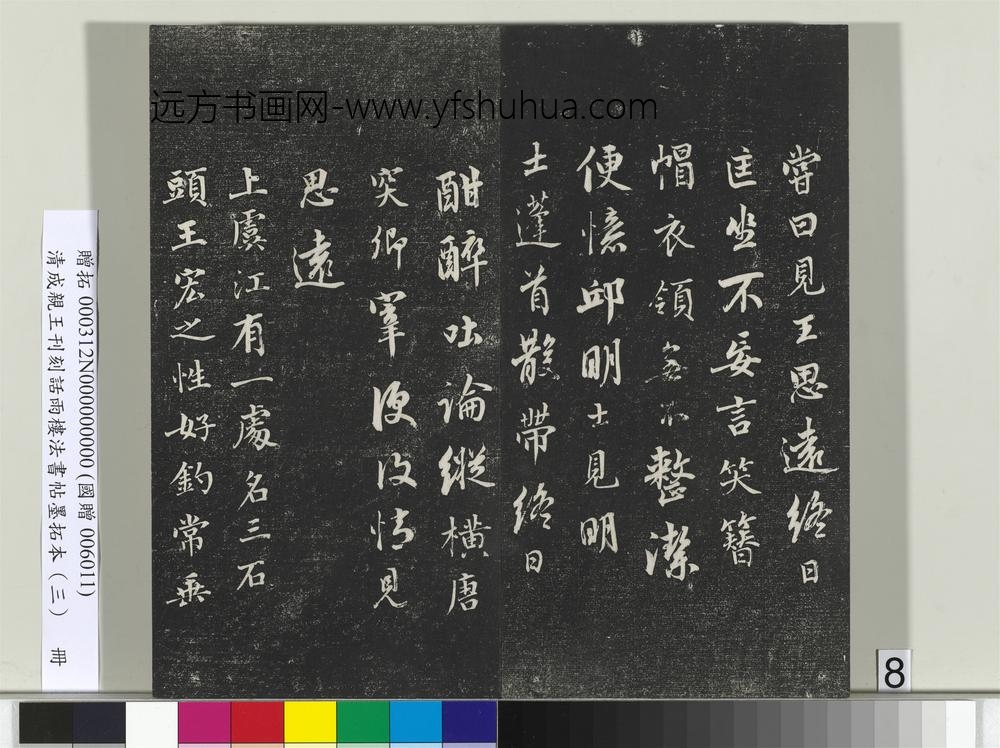 远方书画网-www.yfshuhua.com
嘗曰見王思遠終日
匡坐不妄言笑簪
帽衣領無不整潔
便憶邱明士見明
士蓬首散帶終日
酣醉吐論縱橫唐
突卿宰便復憶見
思遠
上虞江有一處名三石
頭王宏之性好釣常垂
贈拓 000312N000000000(國贈 006011)
清成親王刊刻話雨樓法書帖墨拓本(三) 冊
8